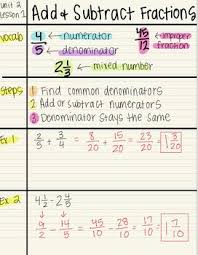 unit 2
lesson 1
Add & Subtract Fractions
vocab
4 ← numerator
5 ← denominator
45/12 ← improper fraction
2 1/3 ← mixed number
steps
1 Find common denominators
2 Add or subtract numerators
3 Denominator stays the same
Ex 1
2/5 + 3/4 = 8/20 + 15/20 = 23/20 = 1 3/20
Ex 2
4 1/2 - 2 4/5
↓ ↓
9/2 - 14/5 = 45/10 - 28/10 = 17/10 = 1 7/10